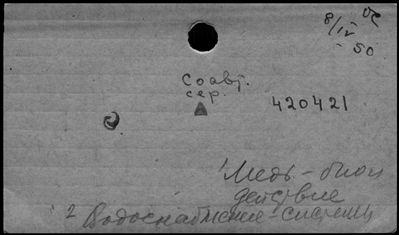 8/IV
- 50
Соавт.
сер.
420421
Медь - биол
действие
2 Водоснабжение - системы